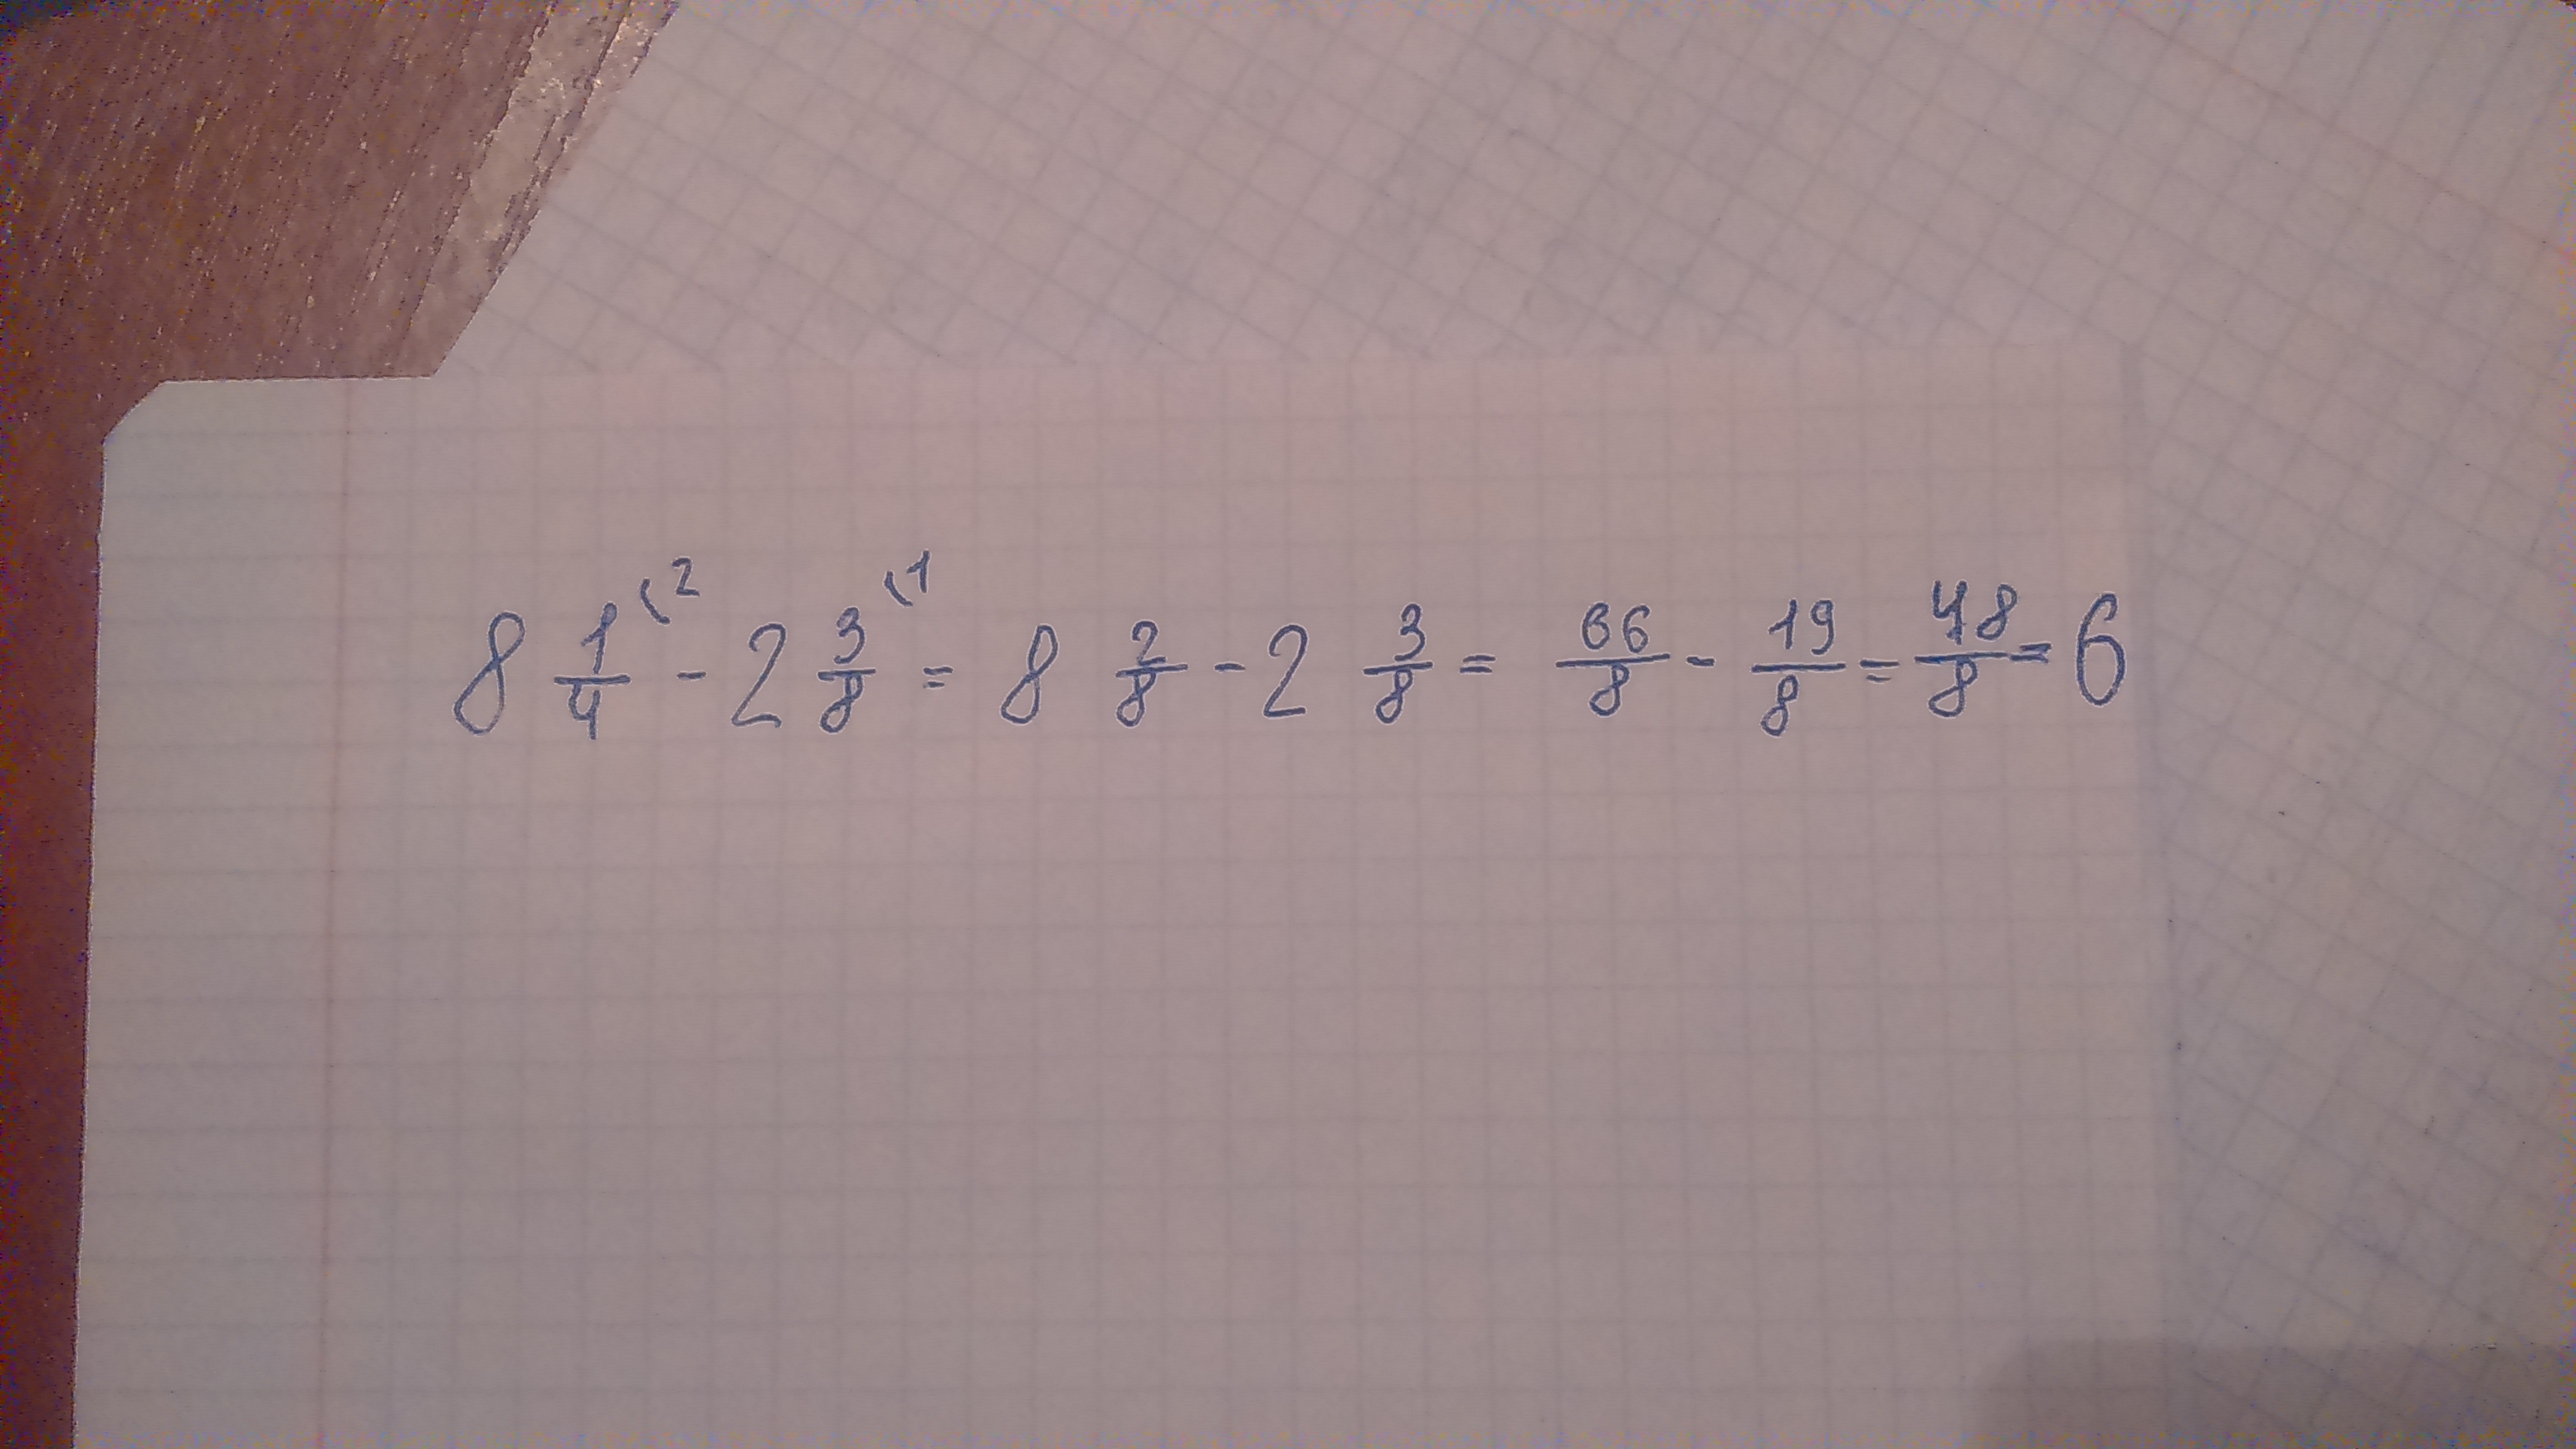 8 1/4 \2 - 2 3/8 \1 = 8 2/8 - 2 3/8 = 66/8 - 19/8 = 48/8 = 6